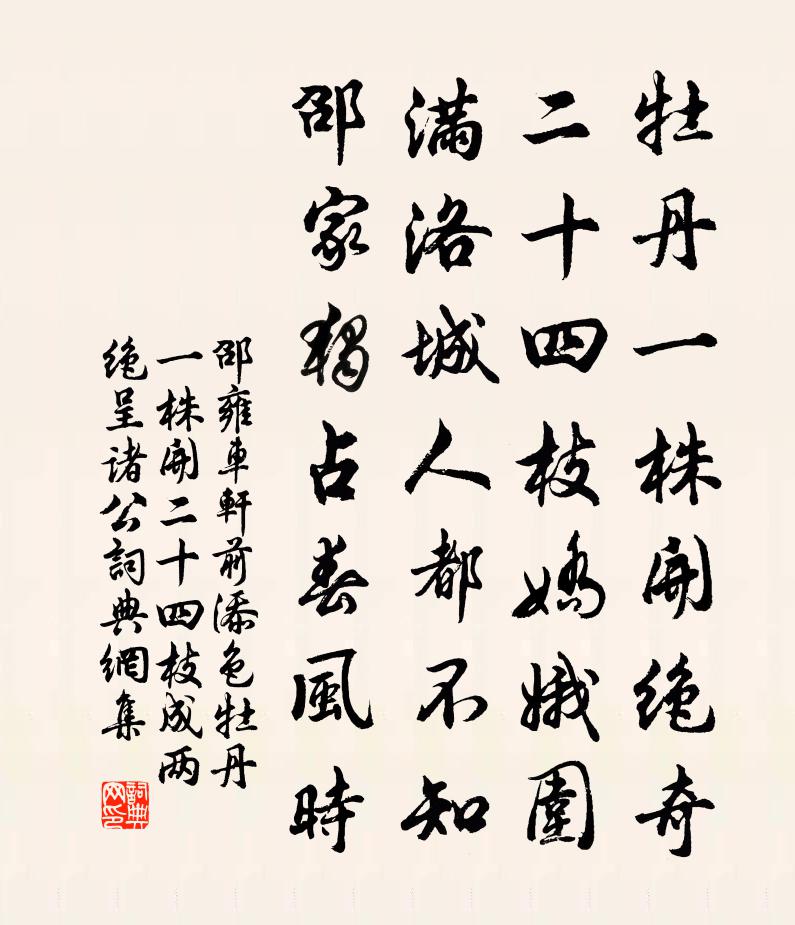 牡丹一株開絶奇
二十四枝嬌娥圍
滿洛城人都不知
邵家獨占春風時
邵雍車軒前添色牡丹
一株開二十四枝成两
絶呈诸公詞典網集
詞典
网印